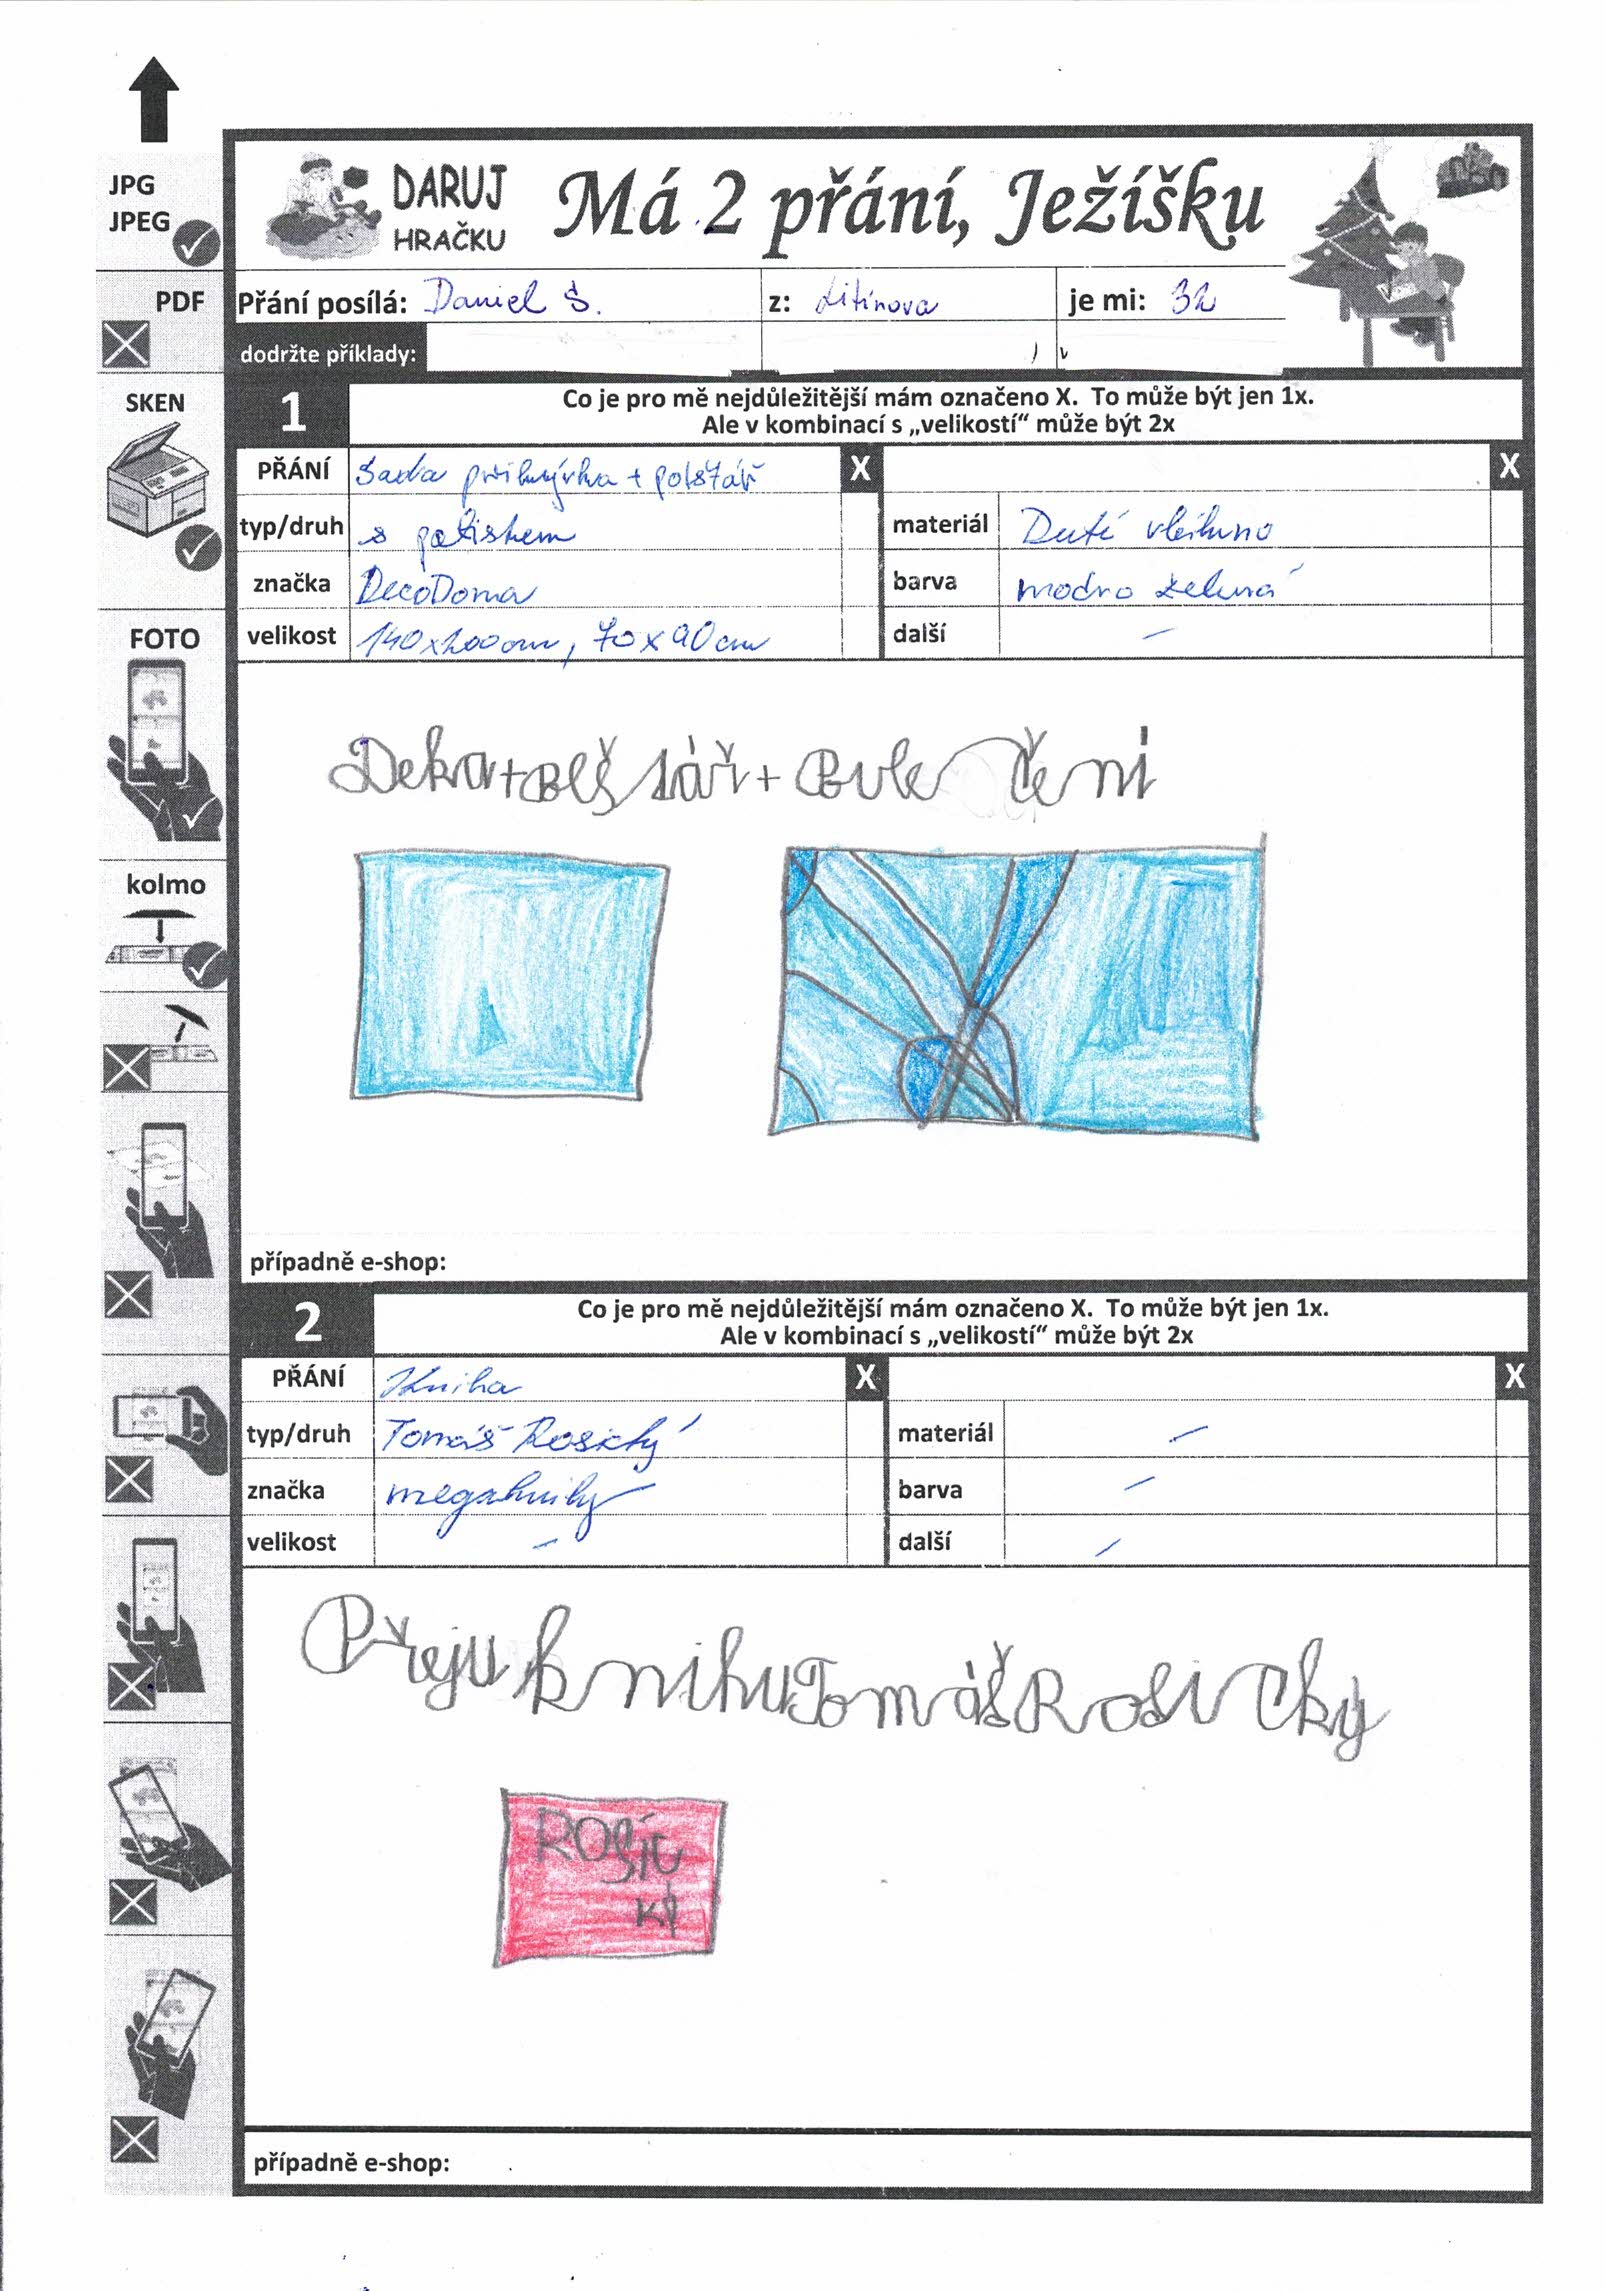 JPG
JPEG
PDF
SKEN
FOTO
kolmo
DARUJ
HRAČKU
Má 2 přání, Ježíšku
Přání posílá: Daniel Š. z: Litínova je mi: 32
dodržte příklady:
1
Co je pro mě nejdůležitější mám označeno X. To může být jen 1x.
Ale v kombinací s „velikostí“ může být 2x
PŘÁNÍ Sada přikrývka + polštář X X
typ/druh s potiskem materiál Duté vlákno
značka DecoDoma barva modro zelená
velikost 140x200cm, 70x90cm další –
Deka+polštář+Povlečení
případně e-shop:
2
Co je pro mě nejdůležitější mám označeno X. To může být jen 1x.
Ale v kombinací s „velikostí“ může být 2x
PŘÁNÍ Kniha X X
typ/druh Tomáš Rosický materiál –
značka megaknihy barva –
velikost – další –
Přeju knihu Tomáš Rosický
ROSIC
KÝ
případně e-shop: